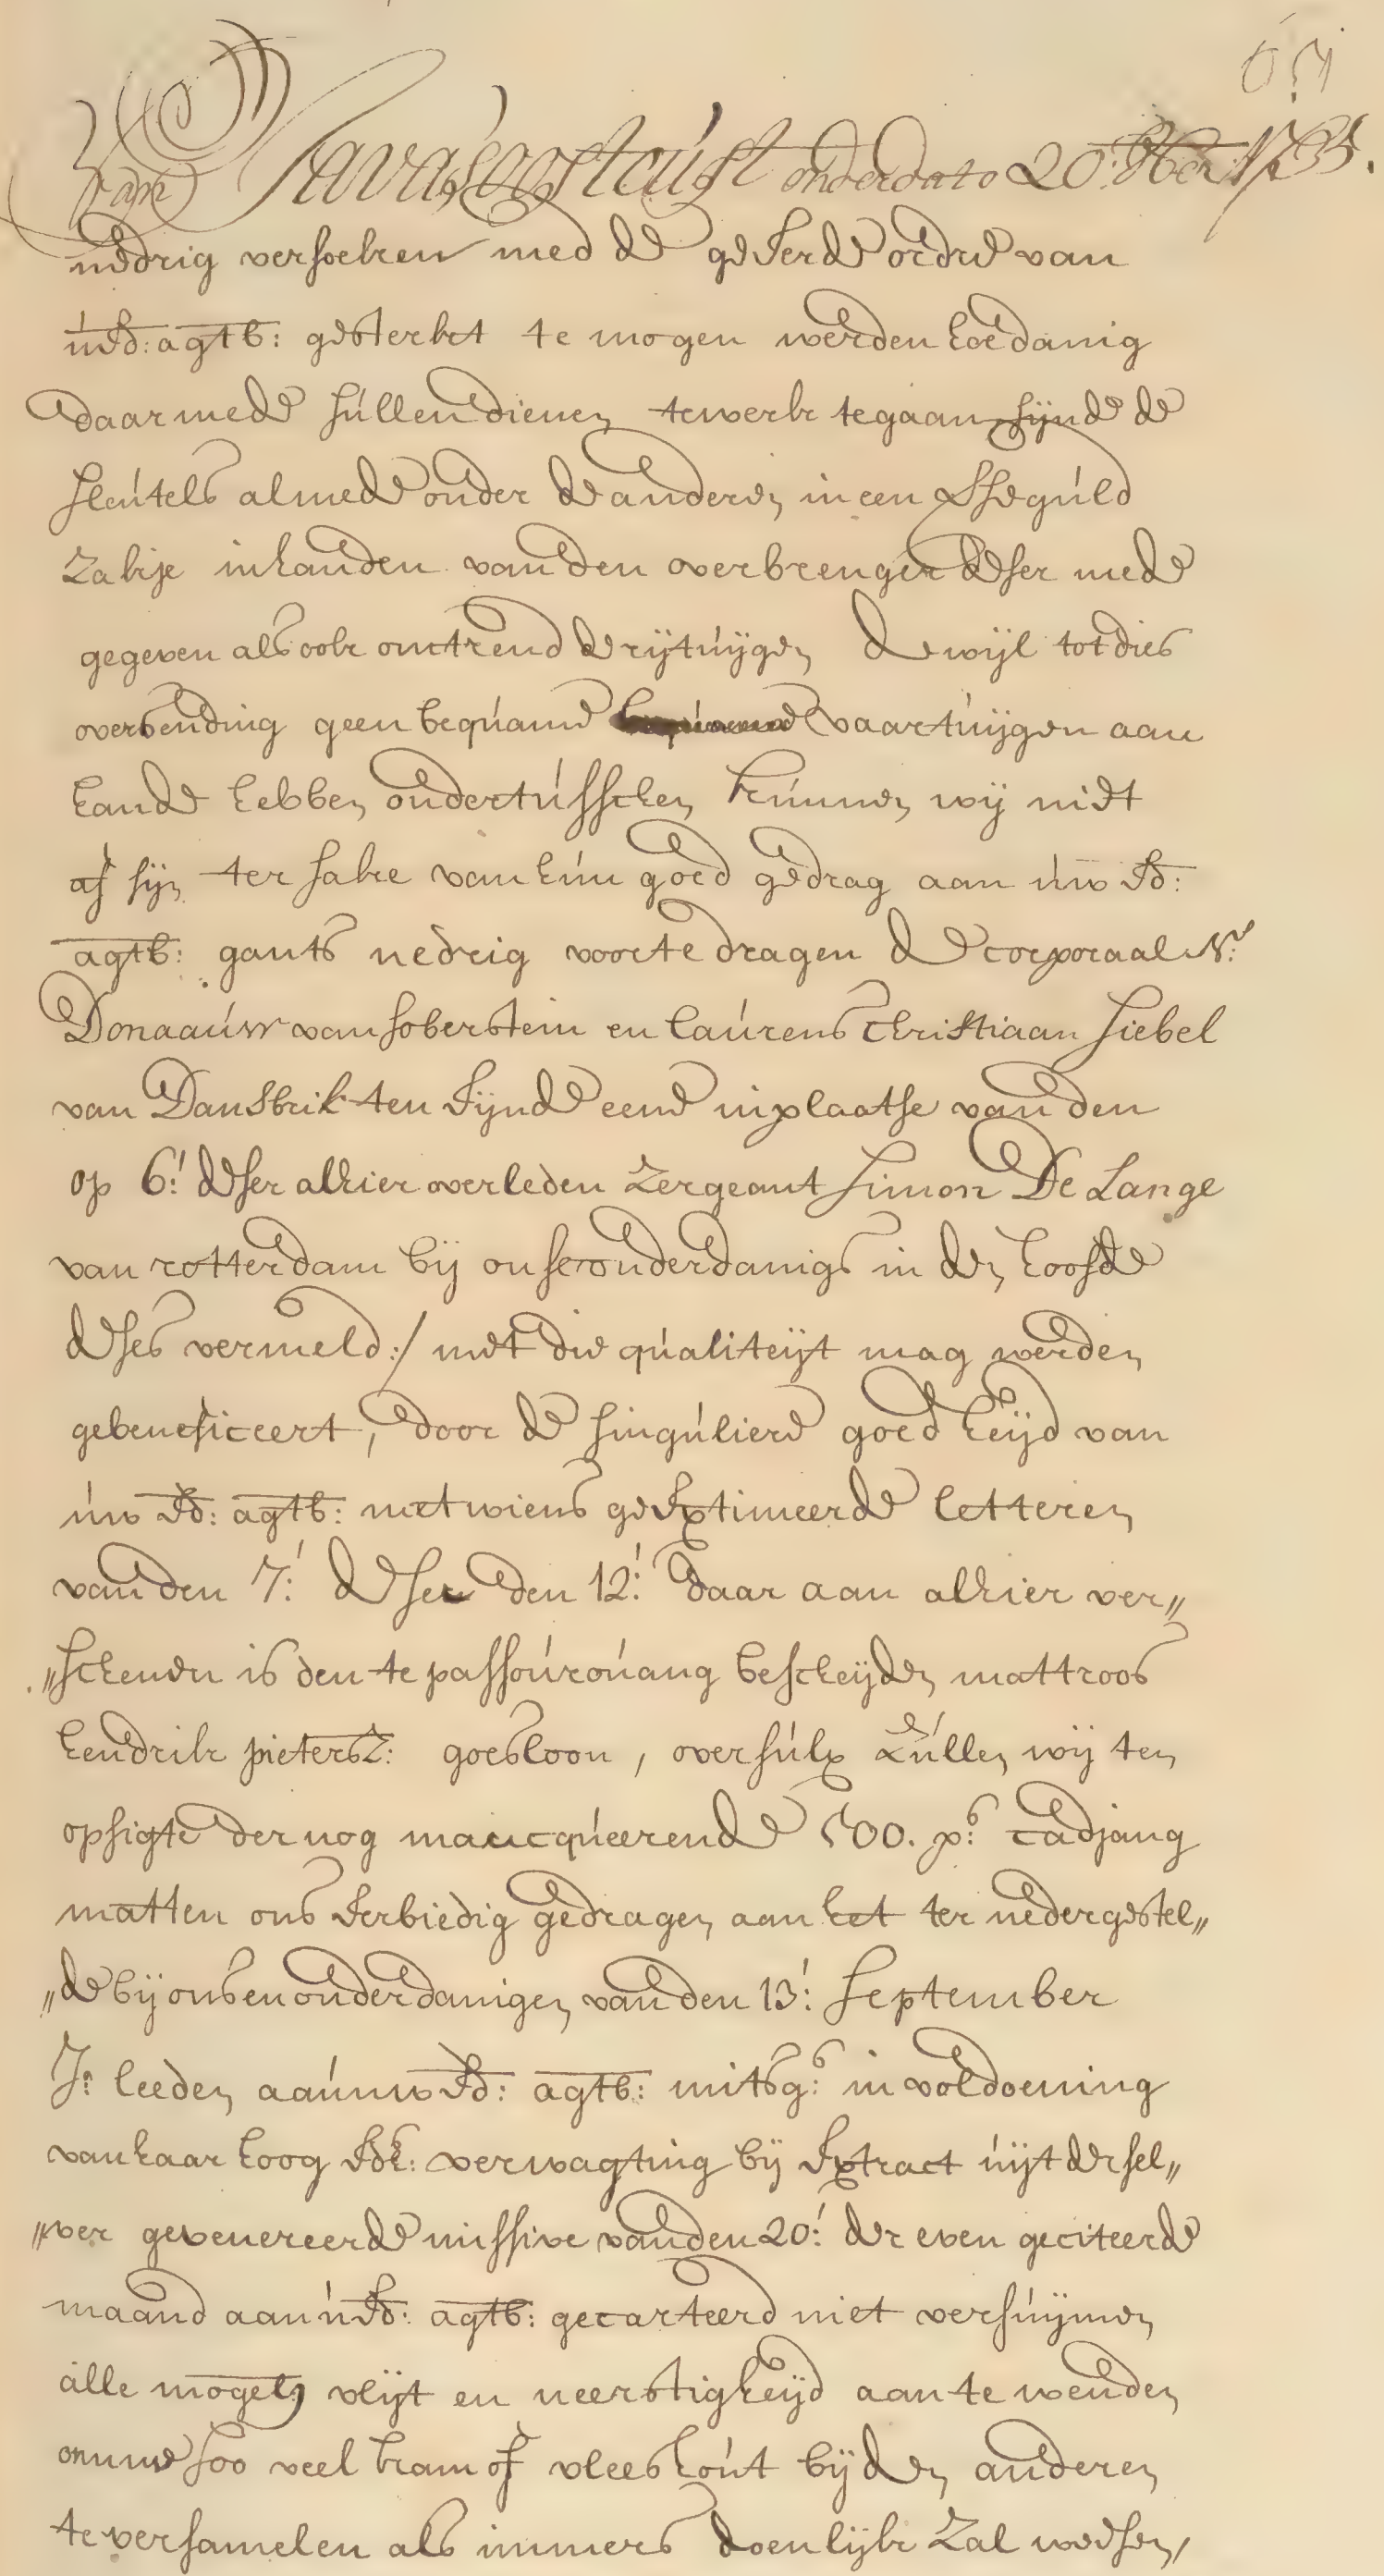 Van Javas oostcust onder dato 20: xber 1735.
nedrig versoeken med de geEerde ordre van
uwEd: agtb: gesterkt te mogen werden hoedanig
daarmede sullen dienen te werk te gaan, sijnde de
sleutels almede onder de andere, in een verseguld
zakje in handen van den overbrenger deser mede
gegeven als ook omtrend de rijtuijgen dewijl tot dies
oversending geen bequame vaartuijgen aan
hande hebben ondertusschen kunnen wij niet
af sijn ter sake van hun goed gedrag aan uw Ed:
agtb: gants nedrig voor te dragen de corporaal N:
Donaauw van soberstein en Laurens Christiaan Siebel
van Dansbrik ten Eijnde eene in plaatse van den
op 6: deser alhier overleden zergeant Simon De Lange
van rotterdam bij onse onderdanigs in den hoofde
deses vermeld:/ met die qualiteijt mag werden
gebeneficeert, door de singuliere goedheijd van
uw Ed: agtb: met wiens geExtimeerde letteren
van den 7: deser den 12: daar aan alhier ver„
„schenen is den te passourouang bescheijden mattroos
hendrik pietersz: goesloon, oversulx zullen wij ten
opsigte der nog manqueerende 500. p:s cadjang
matten ons Eerbiedig gedragen aan het ter nedergestel„
„de bij onsen onderdanigen van den 13: September
J: leeden aan uw Ed: agtb: mitsg:s in voldoening
van haar hoog Edh: verwagting bij Extract uijt dersel„
„ver gevenereerde missive van den 20: der even geciteerde
maand aan uwEd: agtb: gecarteerd niet versuijmen
alle mogel: vlijt en neerstigheijd aan te wenden
omme soo veel kram of vleeshout bij den anderen
te versamelen als immers doenlijk zal wesen,